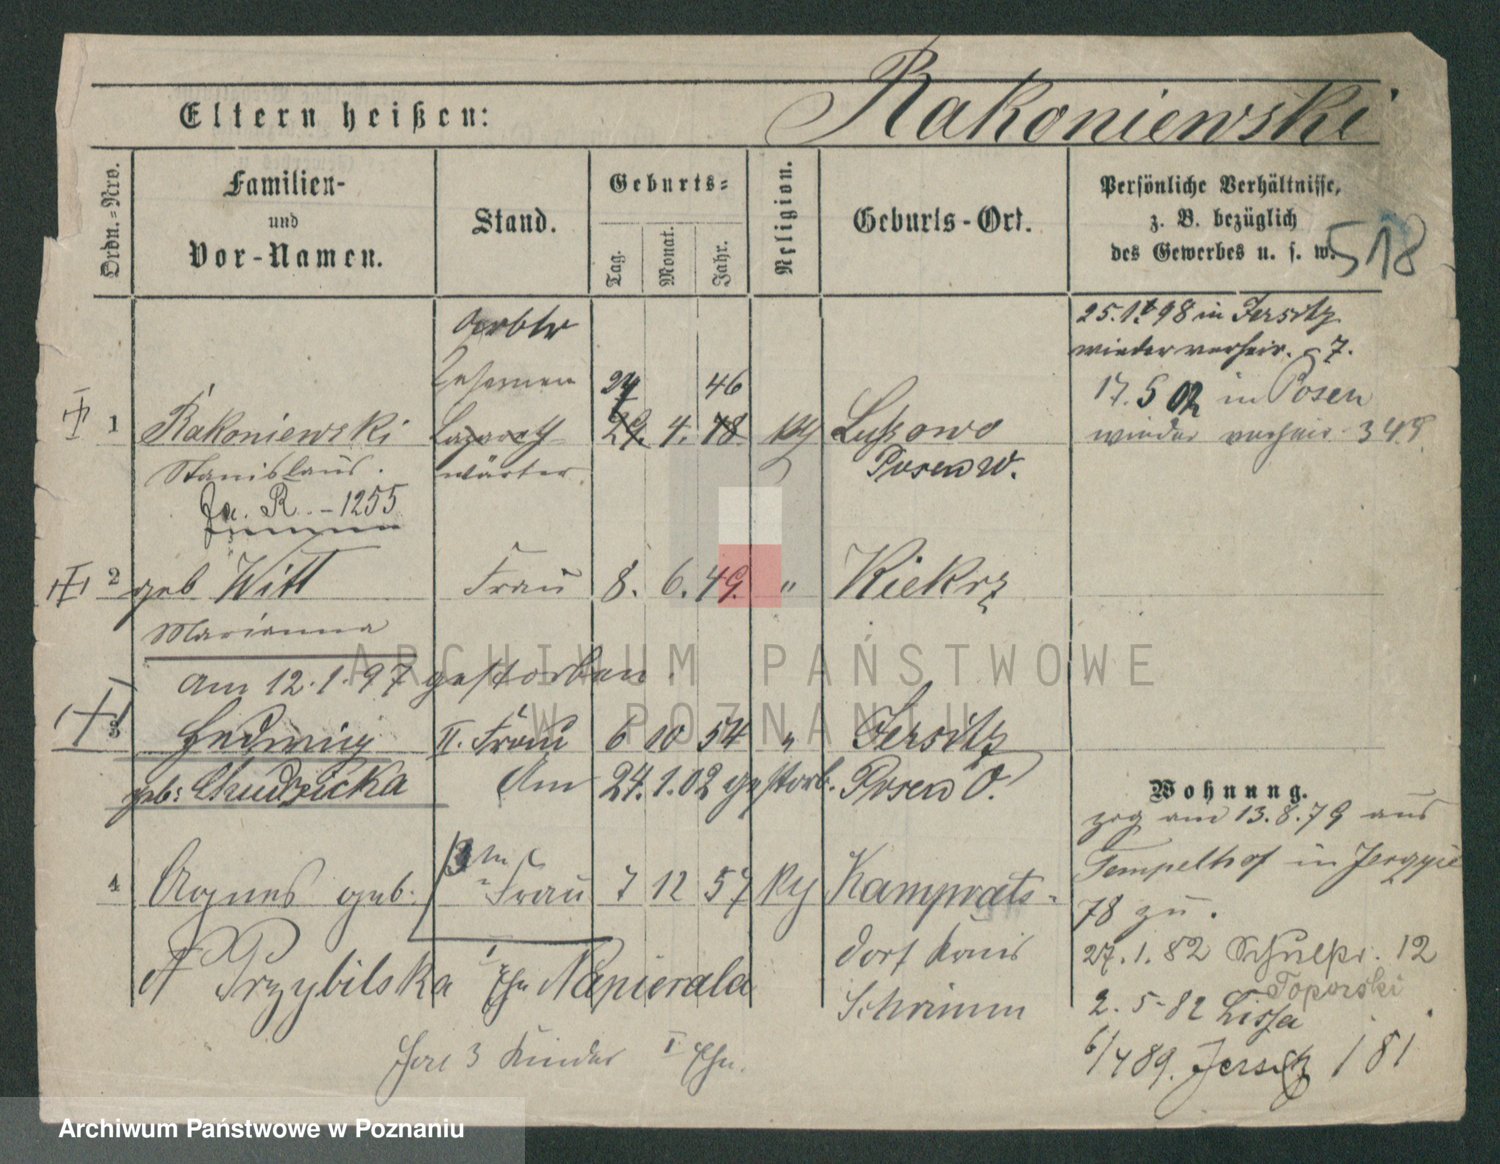 Eltern heißen: Rakoniewski
Ordn.-Nro.
Familien-
und
Vor-Namen.
Stand.
Geburts-
Tag. Monat. Jahr.
Religion.
Geburts-Ort.
Persönliche Verhältnisse,
z. B. bezüglich
des Gewerbes u. s. w.
518
25. 98 in Jersitz
wieder verheir. 7.
27 46
17. 5 02 in Posen
1 Rakoniewski 4. 78 Lussowo
wieder verheir. 345
Stanislaus. wärter Posen W.
R. - 1255
2 geb Witt Frau 8. 6. 49. " Kiekrz
Marianna
am 12. 1. 97 gestorben.
3 Hedwig II. Frau 6 10 54 " Jersitz
geb: Chudzicka Am 24. 1. 02 gestorb. Posen O.
Wohnung.
zog am 13. 8. 79 aus
Tempelhof in
4 Agnes geb. Frau 7 12 57 Kamprats-
78 zu.
A Przybilska Napierala dorf Kreis
27. 1. 82 Schulstr. 12
Toporski
Schrimm
2. 5. 82 Lissa
hat 3 Kinder I Ehe.
6/4 89. Jersitz 181
ARCHIWUM PAŃSTWOWE
W POZNANIU
Archiwum Państwowe w Poznaniu